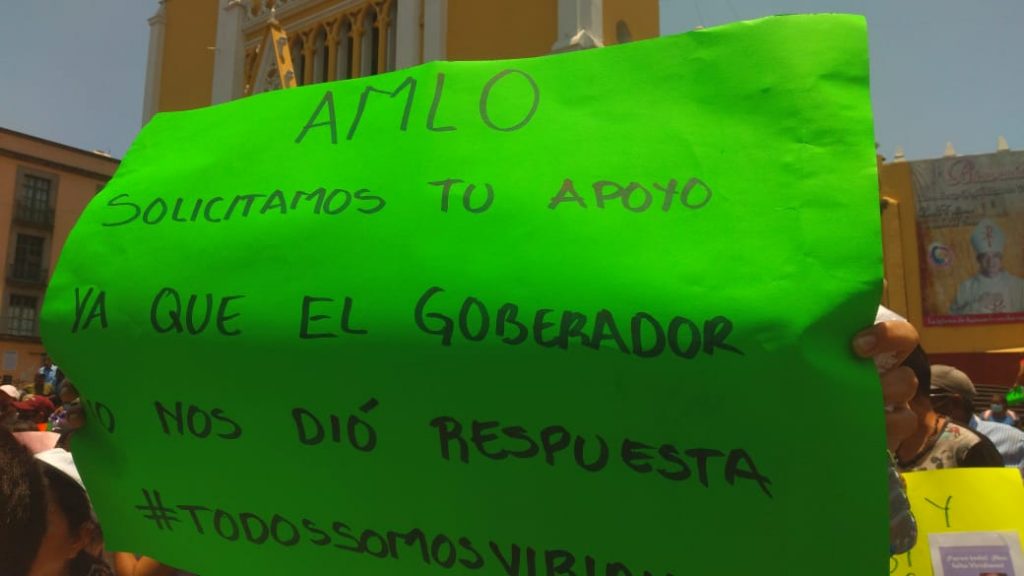 AMLO
SOLICITAMOS TU APOYO
YA QUE EL GOBERADOR
NO NOS DIÓ RESPUESTA
#TODOSSOMOSVIRI
Y